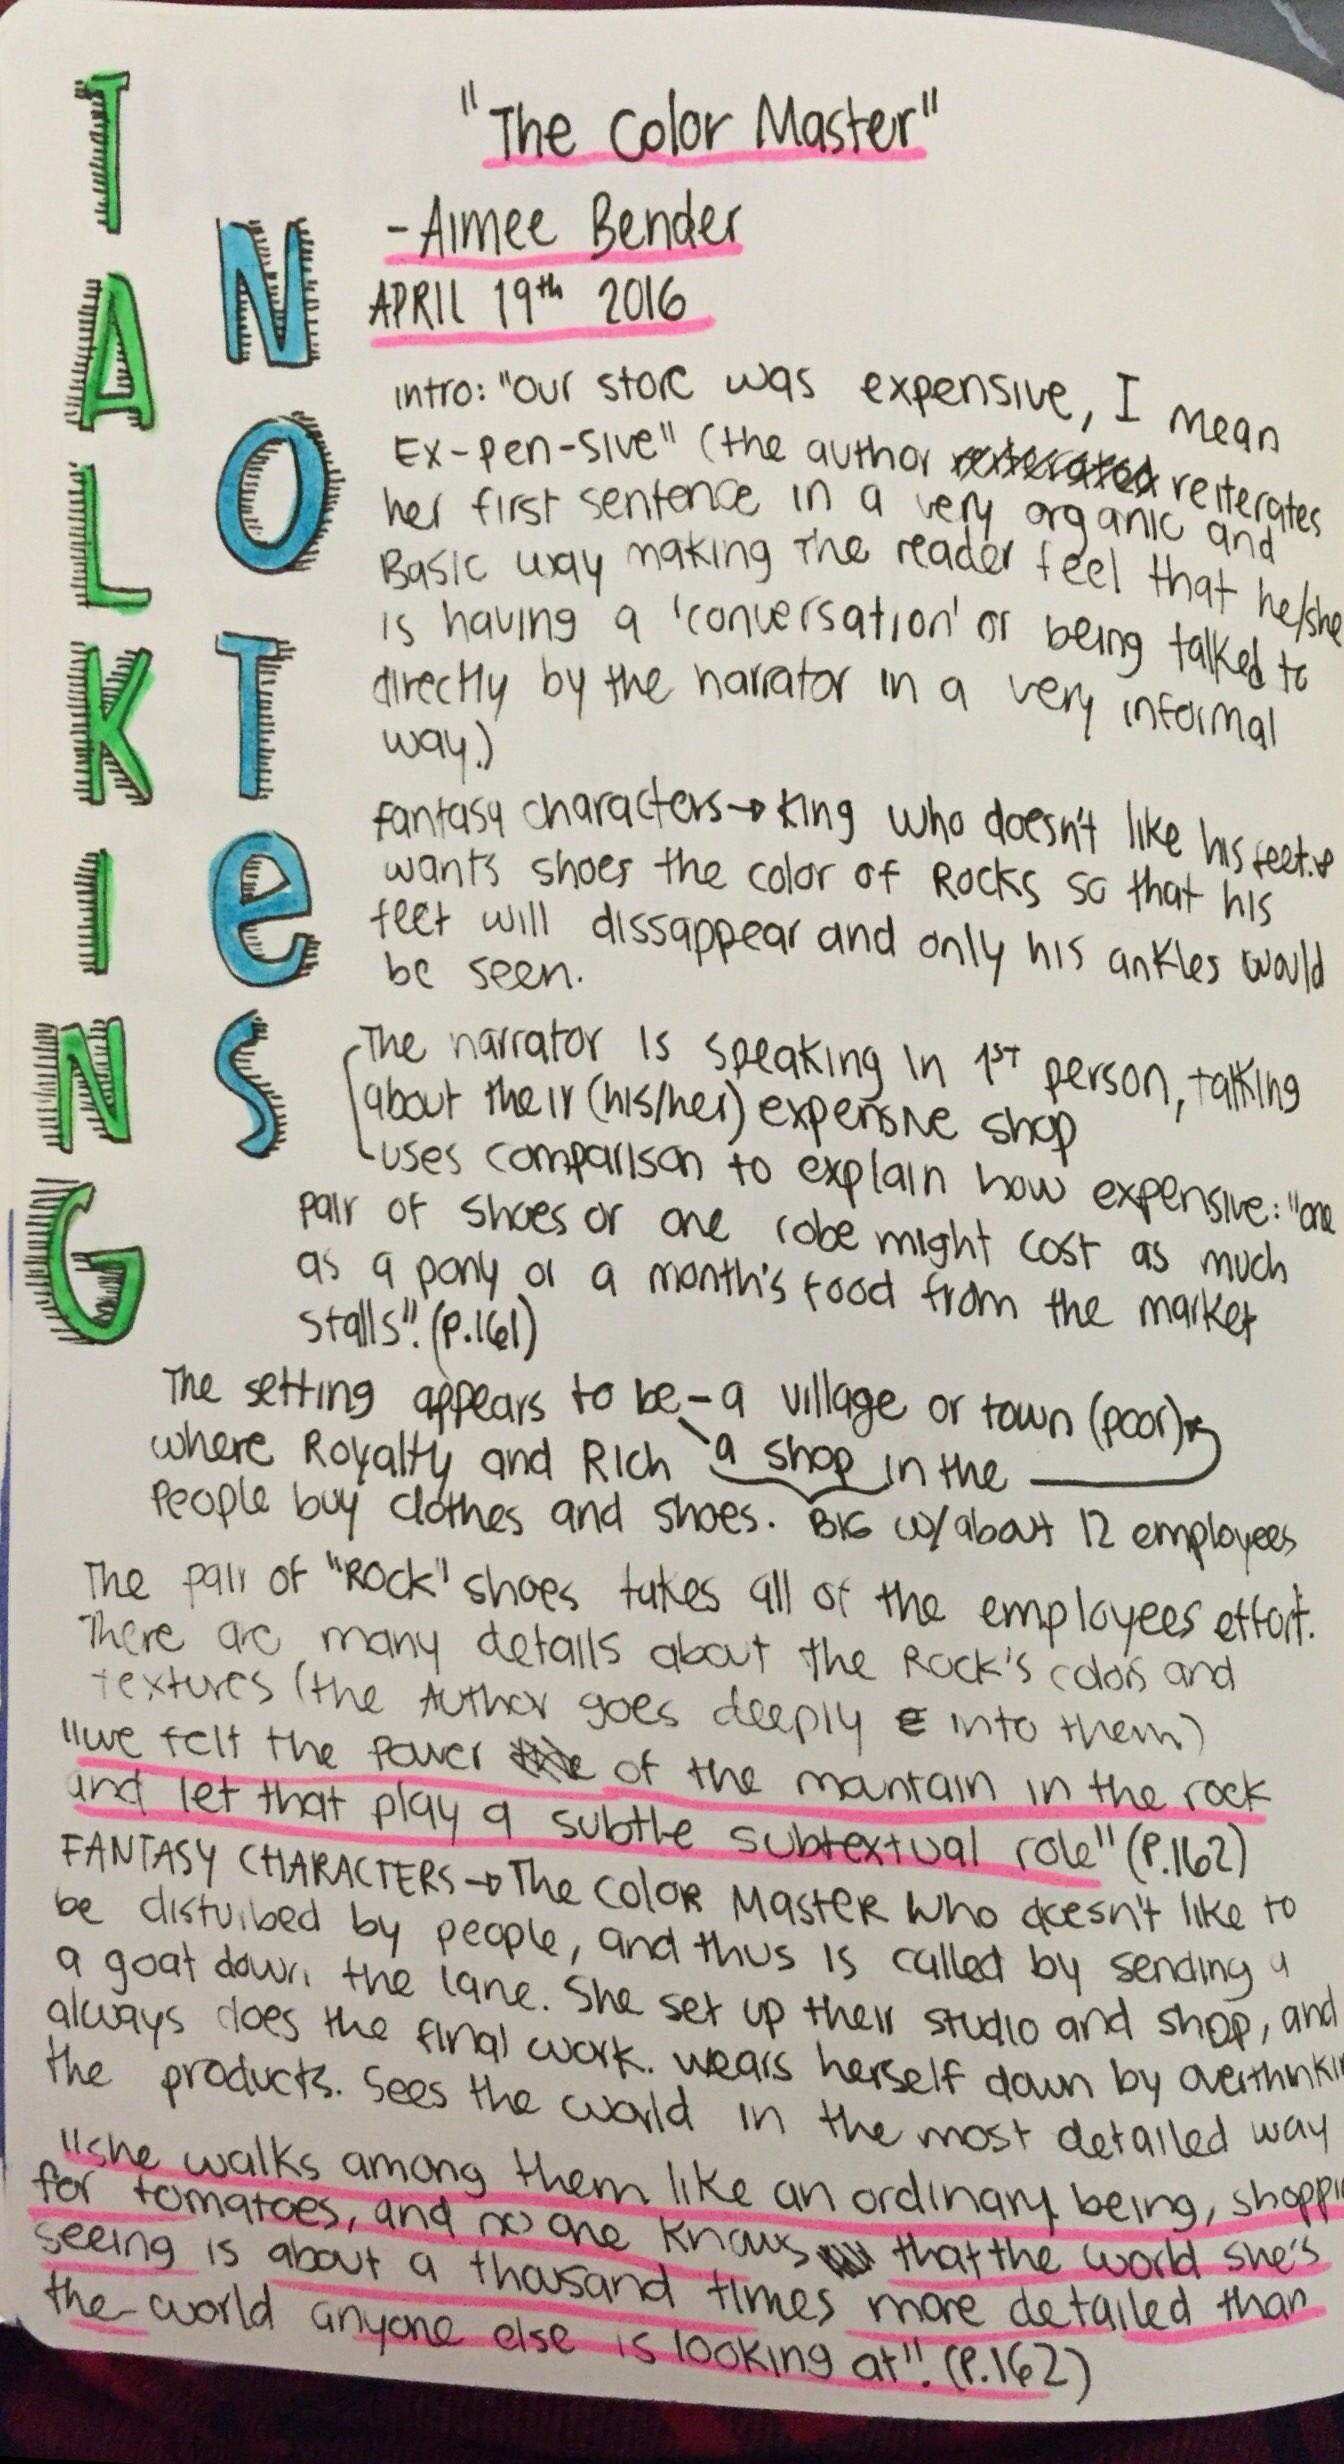 TALKING
NOTeS
"The Color Master"
-Aimee Bender
APRIL 19th 2016
intro: "our store was expensive, I mean
Ex-pen-sive" (the author reiterates
her first sentence in a very organic and
Basic way making the reader feel that he/she
is having a 'conversation' or being talked to
directly by the narrator in a very informal
way.)
fantasy characters→King who doesn't like his feet.
wants shoes the color of Rocks so that his
feet will dissappear and only his ankles would
be seen.
The narrator is speaking in 1st person, talking
about their (his/her) expensive shop
uses comparison to explain how expensive: "one
pair of shoes or one robe might cost as much
as a pony or a month's food from the market
stalls". (p.161)
The setting appears to be - a village or town (poor)
where Royalty and Rich a shop in the
People buy clothes and shoes. BIG w/about 12 employees
The pair of "Rock" shoes takes all of the employees effort.
There are many details about the Rock's colors and
textures (the Author goes deeply into them)
"we felt the power of the mountain in the rock
and let that play a subtle subtextual role" (P.162)
FANTASY CHARACTERS→The Color Master who doesn't like to
be disturbed by people, and thus is called by sending a
a goat down the lane. She set up their studio and shop, and
always does the final work. wears herself down by overthinkin
the products. Sees the world in the most detailed way
"she walks among them like an ordinary being, shoppin
for tomatoes, and no one knows that the world she's
seeing is about a thousand times more detailed than
the world anyone else is looking at". (P.162)